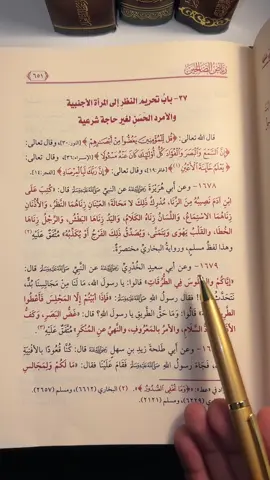 رياض الصالحين
٦٥١
٣٧- باب تحريم النظر إلى المرأة الأجنبية
والأمرد الحسن لغير حاجة شرعية
قال الله تعالى: ﴿قُلْ لِلْمُؤْمِنِينَ يَغُضُّوا مِنْ أَبْصَارِهِمْ﴾ [النور: ٣٠]، وقال تعالى:
﴿إِنَّ السَّمْعَ وَالْبَصَرَ وَالْفُؤَادَ كُلُّ أُولَئِكَ كَانَ عَنْهُ مَسْئُولًا﴾ [الإسراء: ٣٦]، وقال تعالى:
﴿يَعْلَمُ خَائِنَةَ الْأَعْيُنِ﴾ [غافر: ١٩]، وقال تعالى: ﴿إِنَّ رَبَّكَ لَبِالْمِرْصَادِ﴾ [الفجر: ١٤].
١٦٧٨- وعن أبي هريرة ﷺ عن النبي ﷺ قال: «كُتِبَ عَلَى
ابْنِ آدَمَ نَصِيبُهُ مِنَ الزِّنَا، مُدْرِكٌ ذَلِكَ لَا مَحَالَةَ: الْعَيْنَانِ زِنَاهُمَا النَّظَرُ، وَالْأُذُنَانِ
زِنَاهُمَا الِاسْتِمَاعُ، وَاللِّسَانُ زِنَاهُ الْكَلَامُ، وَالْيَدُ زِنَاهَا الْبَطْشُ، وَالرِّجْلُ زِنَاهَا
الْخُطَا، وَالْقَلْبُ يَهْوَى وَيَتَمَنَّى، وَيُصَدِّقُ ذَلِكَ الْفَرْجُ أَوْ يُكَذِّبُهُ» مُتَّفَقٌ عَلَيْهِ
وهذا لفظ مسلم، ورواية البخاري مختصرة.
١٦٧٩- وعن أبي سعيد الخدري عن النبي ﷺ قال:
«إِيَّاكُمْ وَالْجُلُوسَ فِي الطُّرُقَاتِ» قالوا: يا رسول الله، ما لنا من مجالسنا بد،
نتحدث فقال رسول الله ﷺ: «فَإِذَا أَبَيْتُمْ إِلَّا الْمَجْلِسَ فَأَعْطُوا
قالوا: وما حق الطريق يا رسول الله؟ قال: «غَضُّ الْبَصَرِ، وَكَفُّ
السَّلَامِ، وَالْأَمْرُ بِالْمَعْرُوفِ، وَالنَّهْيُ عَنِ الْمُنْكَرِ» مُتَّفَقٌ عَلَيْهِ
وعن أبي طلحة زيد بن سهل قال: كنا قعودا بالأفنية
فجاء رسول الله ﷺ فقام علينا فقال: «مَا لَكُمْ وَلِمَجَالِسِ
البخاري (٦٦١٢)، ومسلم (٢٦٥٧)
(٦٢٢٩)، ومسلم (٢١٢١)